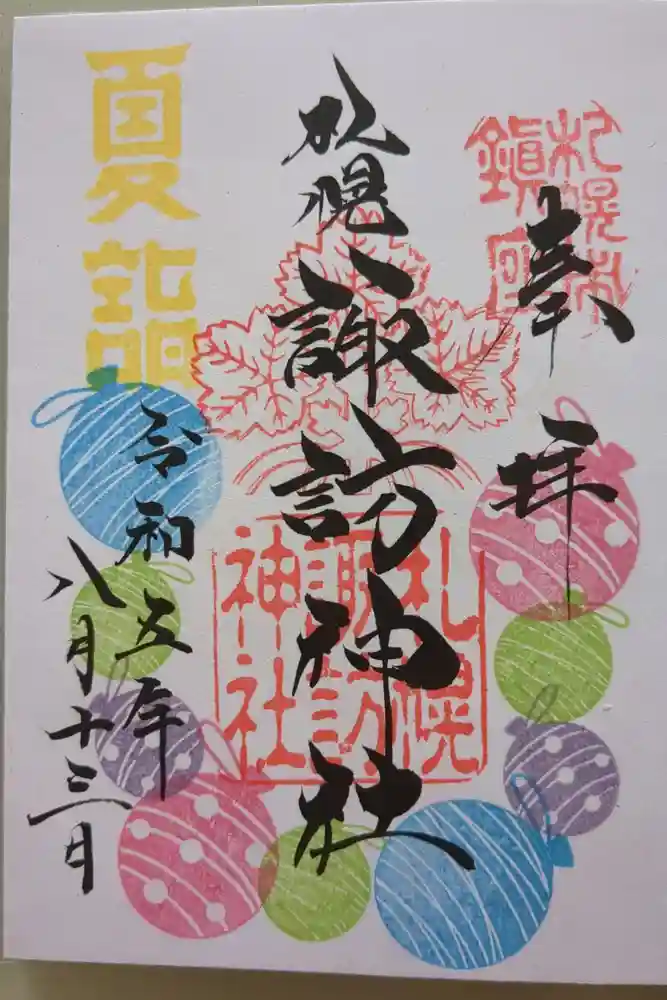 奉拝
札幌市
鎮回
札幌諏訪神社
札幌
諏訪
神社
夏詣
令和五年
八月十三日